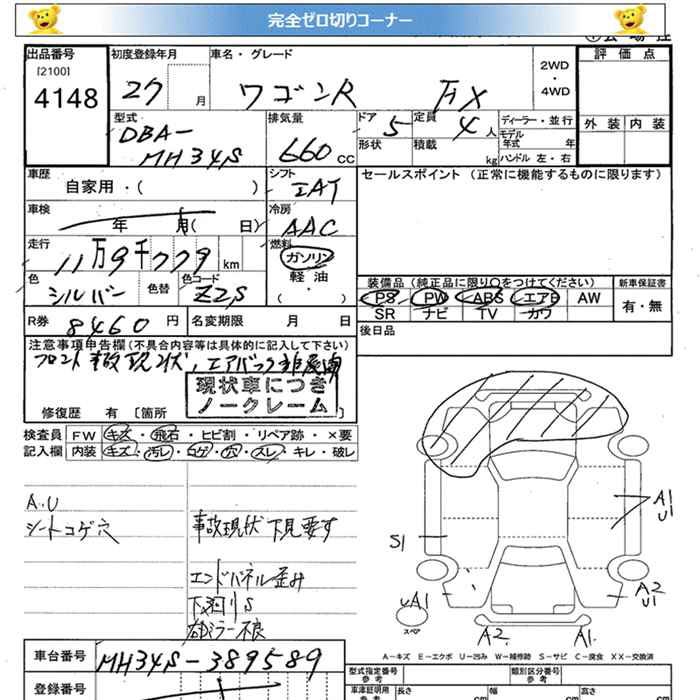 完全ゼロ切りコーナー
出品番号
[2100]
4148
初度登録年月
27 月
車名・グレード
ワゴンR FX
2WD
・
4WD
評価点
外装 内装
型式
DBA-
MH34S
排気量
660 CC
ドア 5
形状
定員 4 人
積載 kg
ディーラー・並行
モデル
年式 年
ハンドル 左・右
車歴
自家用・( )
シフト
IAT
セールスポイント (正常に機能するものに限ります)
車検
年 月( 日)
冷房
AAC
走行
11万9千779 km
燃料
ガソリン
軽油
( ・ )
色
シルバー
色替
色コード
Z2S
装備品 (純正品に限り○をつけてください)
PS PW ABS エアB AW
SR ナビ TV カワ
新車保証書
有・無
R券 8460 円
名変期限 月 日
後日品
注意事項申告欄(不具合内容等は具体的に記入して下さい)
フロント事故現状、エアバック非展開
現状車につき
ノークレーム
修復歴 有 [箇所
検査員
記入欄
FW キズ・飛石・ヒビ割・リペア跡・×要
内装 キズ・汚レ・コゲ・穴・スレ・キレ・破レ
A.U
シートコゲ穴
事故現状 下見要す
エンドパネル歪み
下廻りS
右ミラー不良
S1
A1
U1
A2
U1
UA1
スペア
A2
A1
A-キズ E-エクボ U-凹み W-補修跡 S-サビ C-腐食 XX-交換済
車台番号
MH34S-389589
登録番号
型式指定番号
参考
類別区分番号
参考
車庫証明用
参考
長さ cm
幅 cm
高さ cm